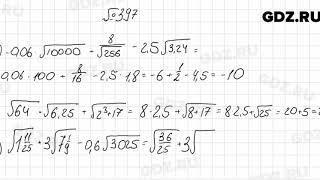 №397
GDZ.RU
) -0,06√10000 + 8/√256 - 2,5√3,24 =
0,06·100 + 8/16 - 2,5·1,8 = -6 + 1/2 - 4,5 = -10
√64 · √6,25 + √2³+17 = 8·2,5 + √8+17 = 8·2,5 + √25 = 20+5=2
) √1 11/25 + 3√7 1/9 - 0,6√3025 = √36/25 + 3√